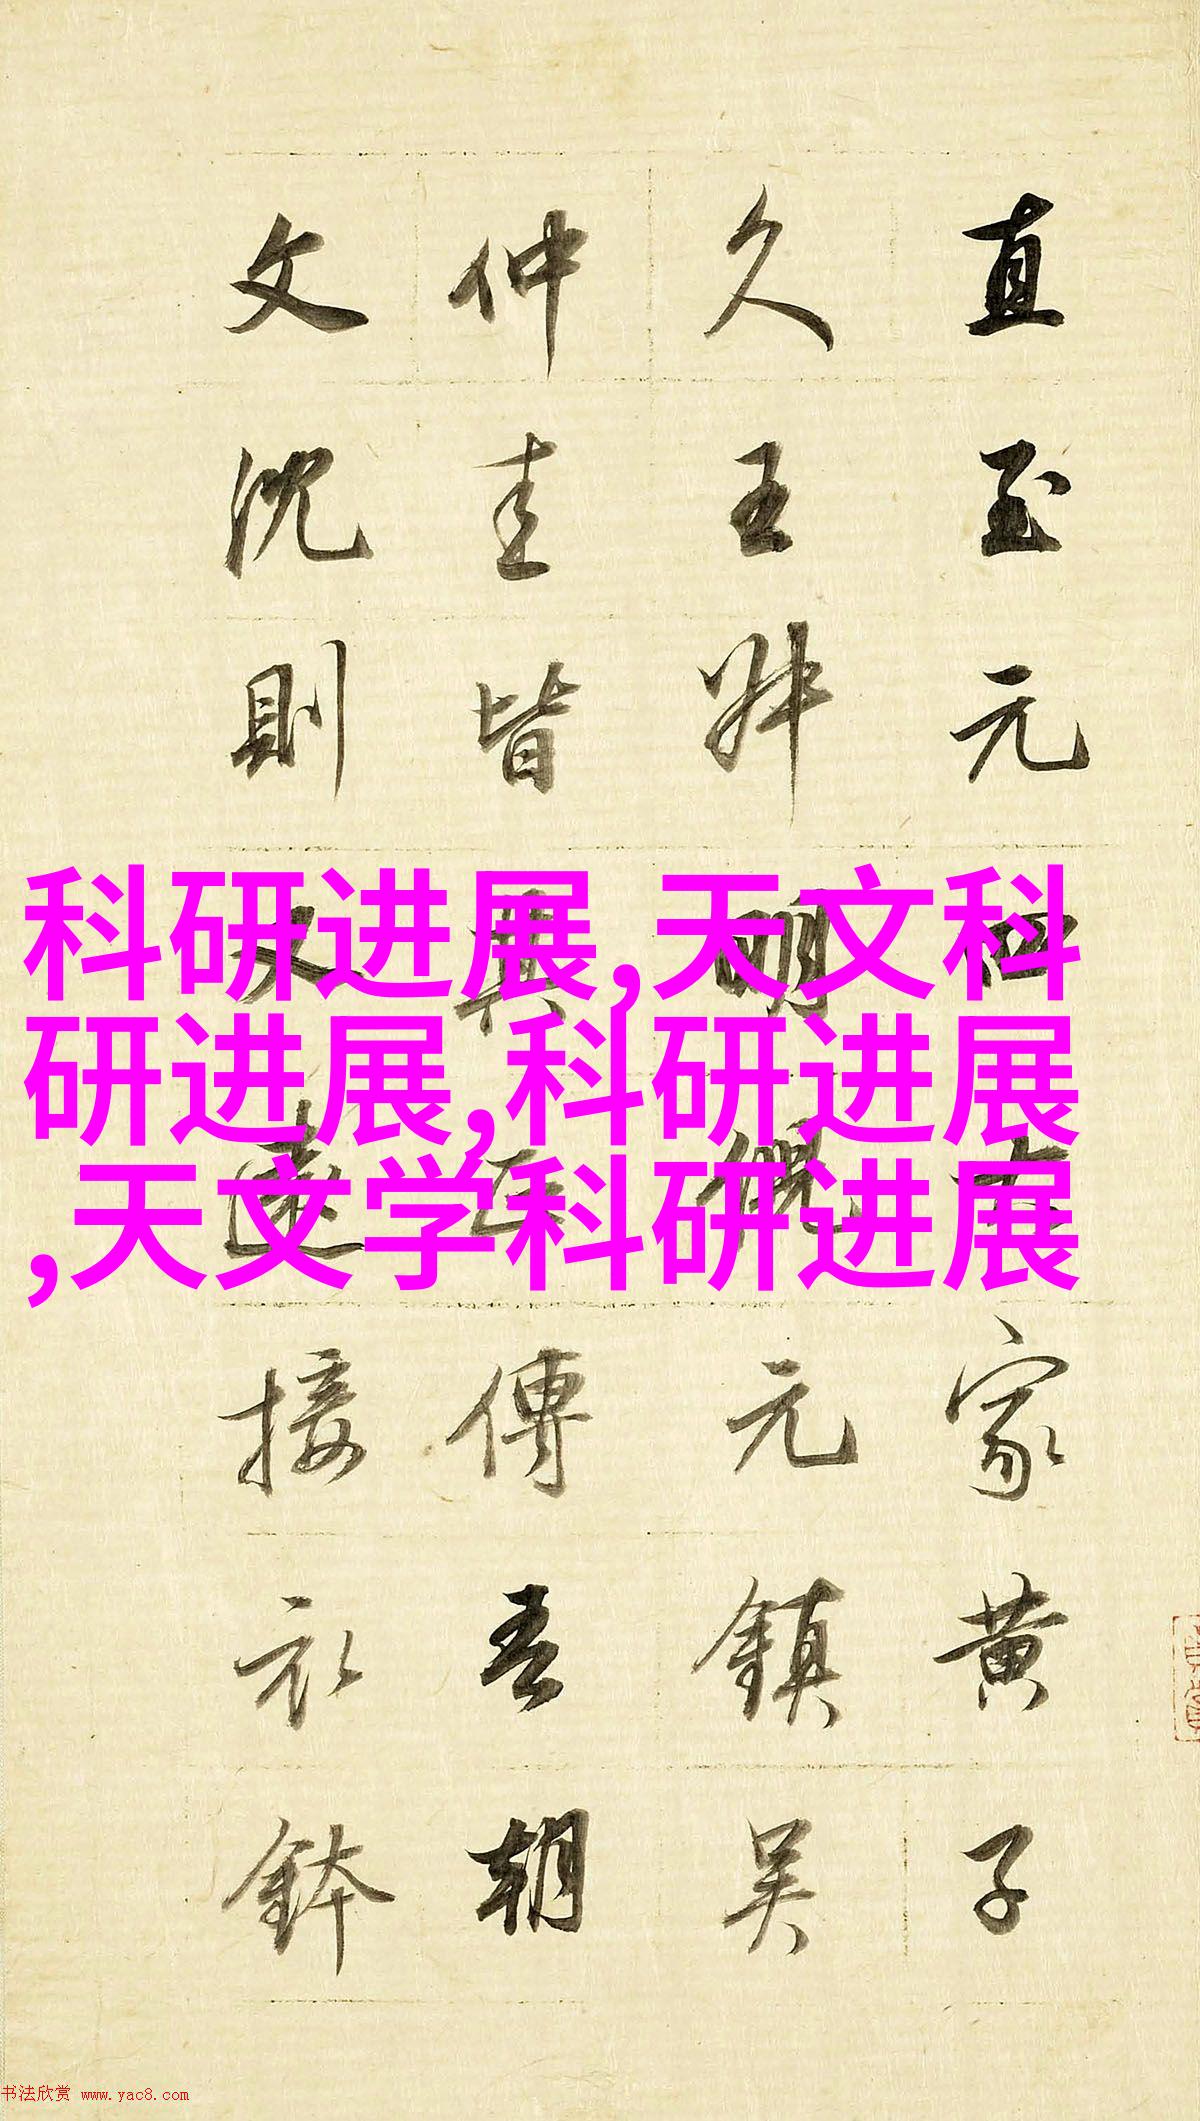 直至元四大家黄子
久王叔明倪元鎮吴
仲圭皆其正傳吾朝
文沈則又遠接衣鉢
科研进展,天文科
研进展,科研进展
,天文学科研进展
书法欣赏 www.yac8.com